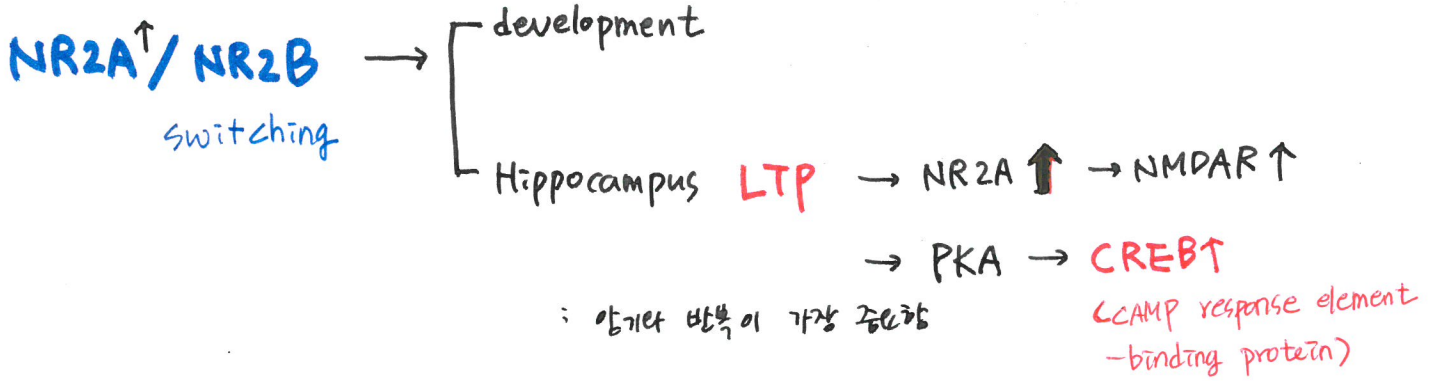 NR2A↑/ NR2B → development
switching
Hippocampus LTP → NR2A ↑ → NMDAR ↑
→ PKA → CREB↑
: 암기와 반복이 가장 중요함
(CAMP response element
-binding protein)